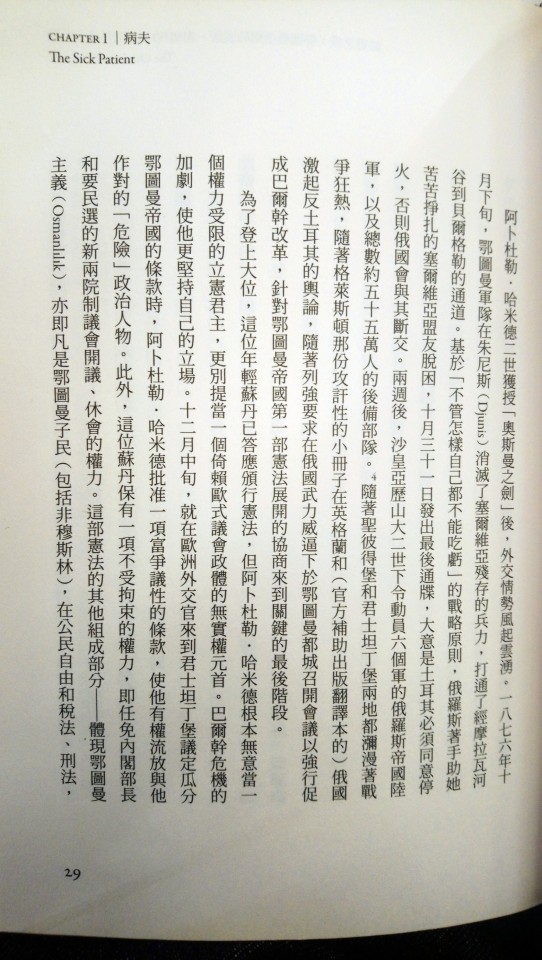 CHAPTER 1｜病夫
The Sick Patient
阿卜杜勒·哈米德二世獲授「奧斯曼之劍」後，外交情勢風起雲湧。一八七六年十
月下旬，鄂圖曼軍隊在朱尼斯（Djunis）消滅了塞爾維亞殘存的兵力，打通了經摩拉瓦河
谷到貝爾格勒的通道。基於「不管怎樣自己都不能吃虧」的戰略原則，俄羅斯著手助她
苦苦掙扎的塞爾維亞盟友脫困，十月三十一日發出最後通牒，大意是土耳其必須同意停
火，否則俄國會與其斷交。兩週後，沙皇亞歷山大二世下令動員六個軍的俄羅斯帝國陸
軍，以及總數約五十五萬人的後備部隊。4隨著聖彼得堡和君士坦丁堡兩地都瀰漫著戰
爭狂熱，隨著格萊斯頓那份攻訐性的小冊子在英格蘭和（官方補助出版翻譯本的）俄國
激起反土耳其的輿論，隨著列強要求在俄國武力威逼下於鄂圖曼都城召開會議以強行促
成巴爾幹改革，針對鄂圖曼帝國第一部憲法展開的協商來到關鍵的最後階段。
為了登上大位，這位年輕蘇丹已答應頒行憲法，但阿卜杜勒·哈米德根本無意當一
個權力受限的立憲君主，更別提當一個倚賴歐式議會政體的無實權元首。巴爾幹危機的
加劇，使他更堅持自己的立場。十二月中旬，就在歐洲外交官來到君士坦丁堡議定瓜分
鄂圖曼帝國的條款時，阿卜杜勒·哈米德批准一項富爭議性的條款，使他有權流放與他
作對的「危險」政治人物。此外，這位蘇丹保有一項不受拘束的權力，即任免內閣部長
和要民選的新兩院制議會開議、休會的權力。這部憲法的其他組成部分——體現鄂圖曼
主義（Osmanlılık），亦即凡是鄂圖曼子民（包括非穆斯林），在公民自由和稅法、刑法，
29